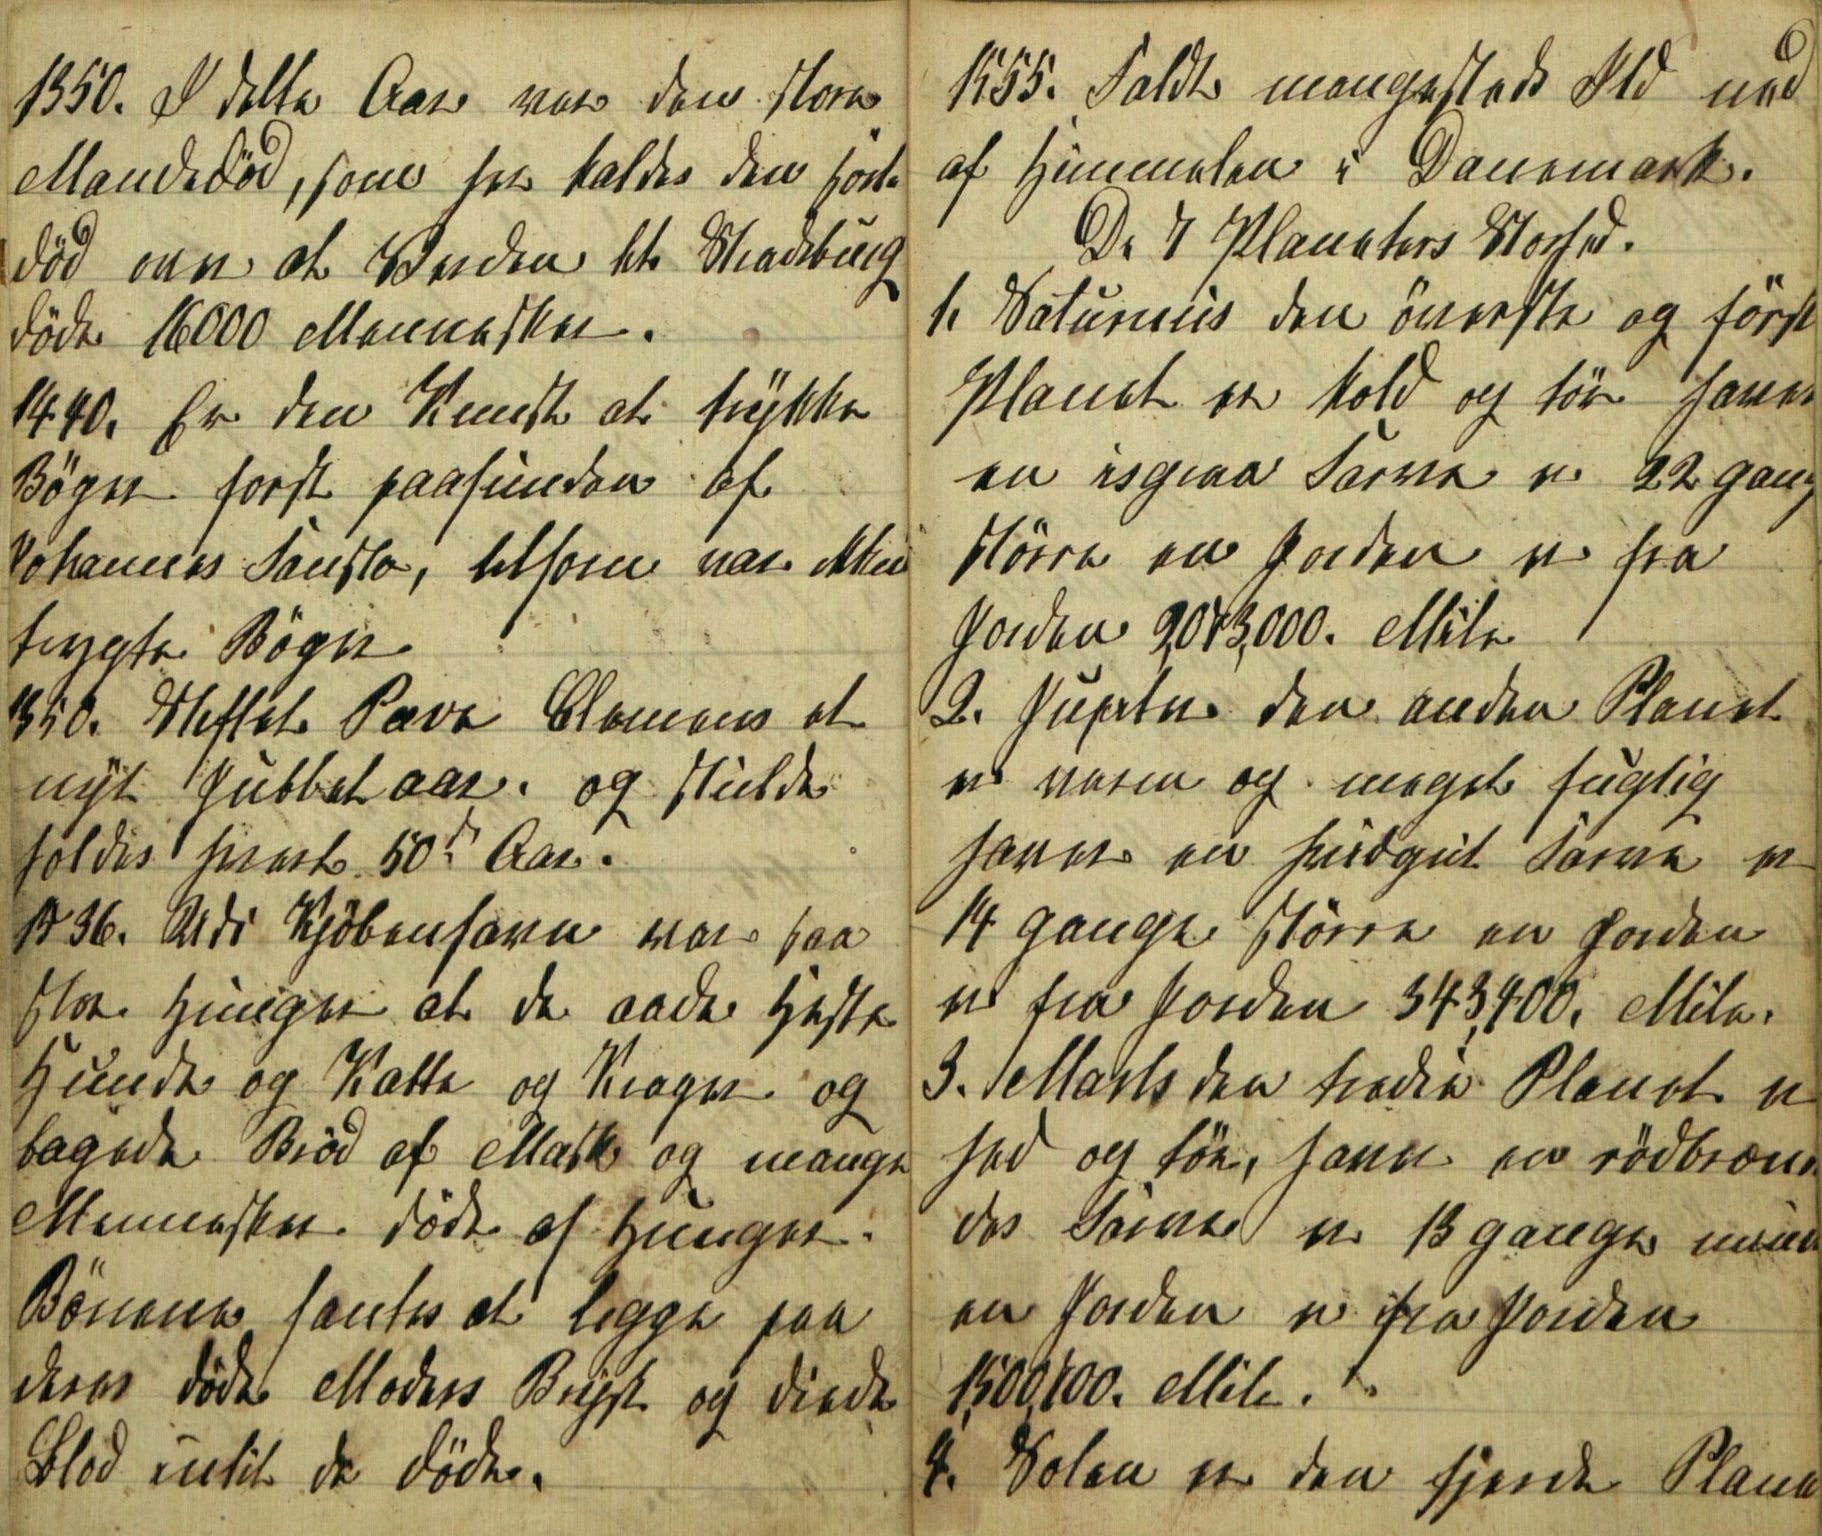 1350. I dette Aar var den store
Mandedöd, som her kaldes den sorte
död over al Verden ut Stradsburg
döde 16000 Mennesker.
1440. Er den Kunst at trykke
Böger först paafunden af
Johannes Fausto, tilforn var ikke
trygte Böger
1350. Stiftet Pave Clemens et
nyt Jubbel aar. og skulde
holdes hvert 50de Aar.
1536. Udi Kjöbenhavn var saa
stor Hunger at de aade Heste
Hunde og Katte og Krager og
bagede Bröd af Mask og mange
Mennesker döde af Hunger.
Börnene fantes at ligge paa
deres döde Moders Bryst og diede
Blod indtil de döde.
6
1555. Faldt mangesteds Ild ned
af Himmelen i Danemark.
De 7 Planeters Storhed.
1. Saturnus den överste og förste
Planet er kold og tör haver
en isgraa Farve er 22 gang
större en Jorden er fra
Jorden 9,073,000. Mile
2. Jupiter den anden Planet
er varm og meget fugtig
haver en hvidgul Farve er
14 gange större en Jorden
er fra Jorden 343,400. Mile.
3. Marts den tredie Planet er
hed og tör, haver en rödbræn
des Farve er 13 gange mind
en Jorden er fra Jorden
1,500,100. Mile.
4. Solen er den fjerde Plane